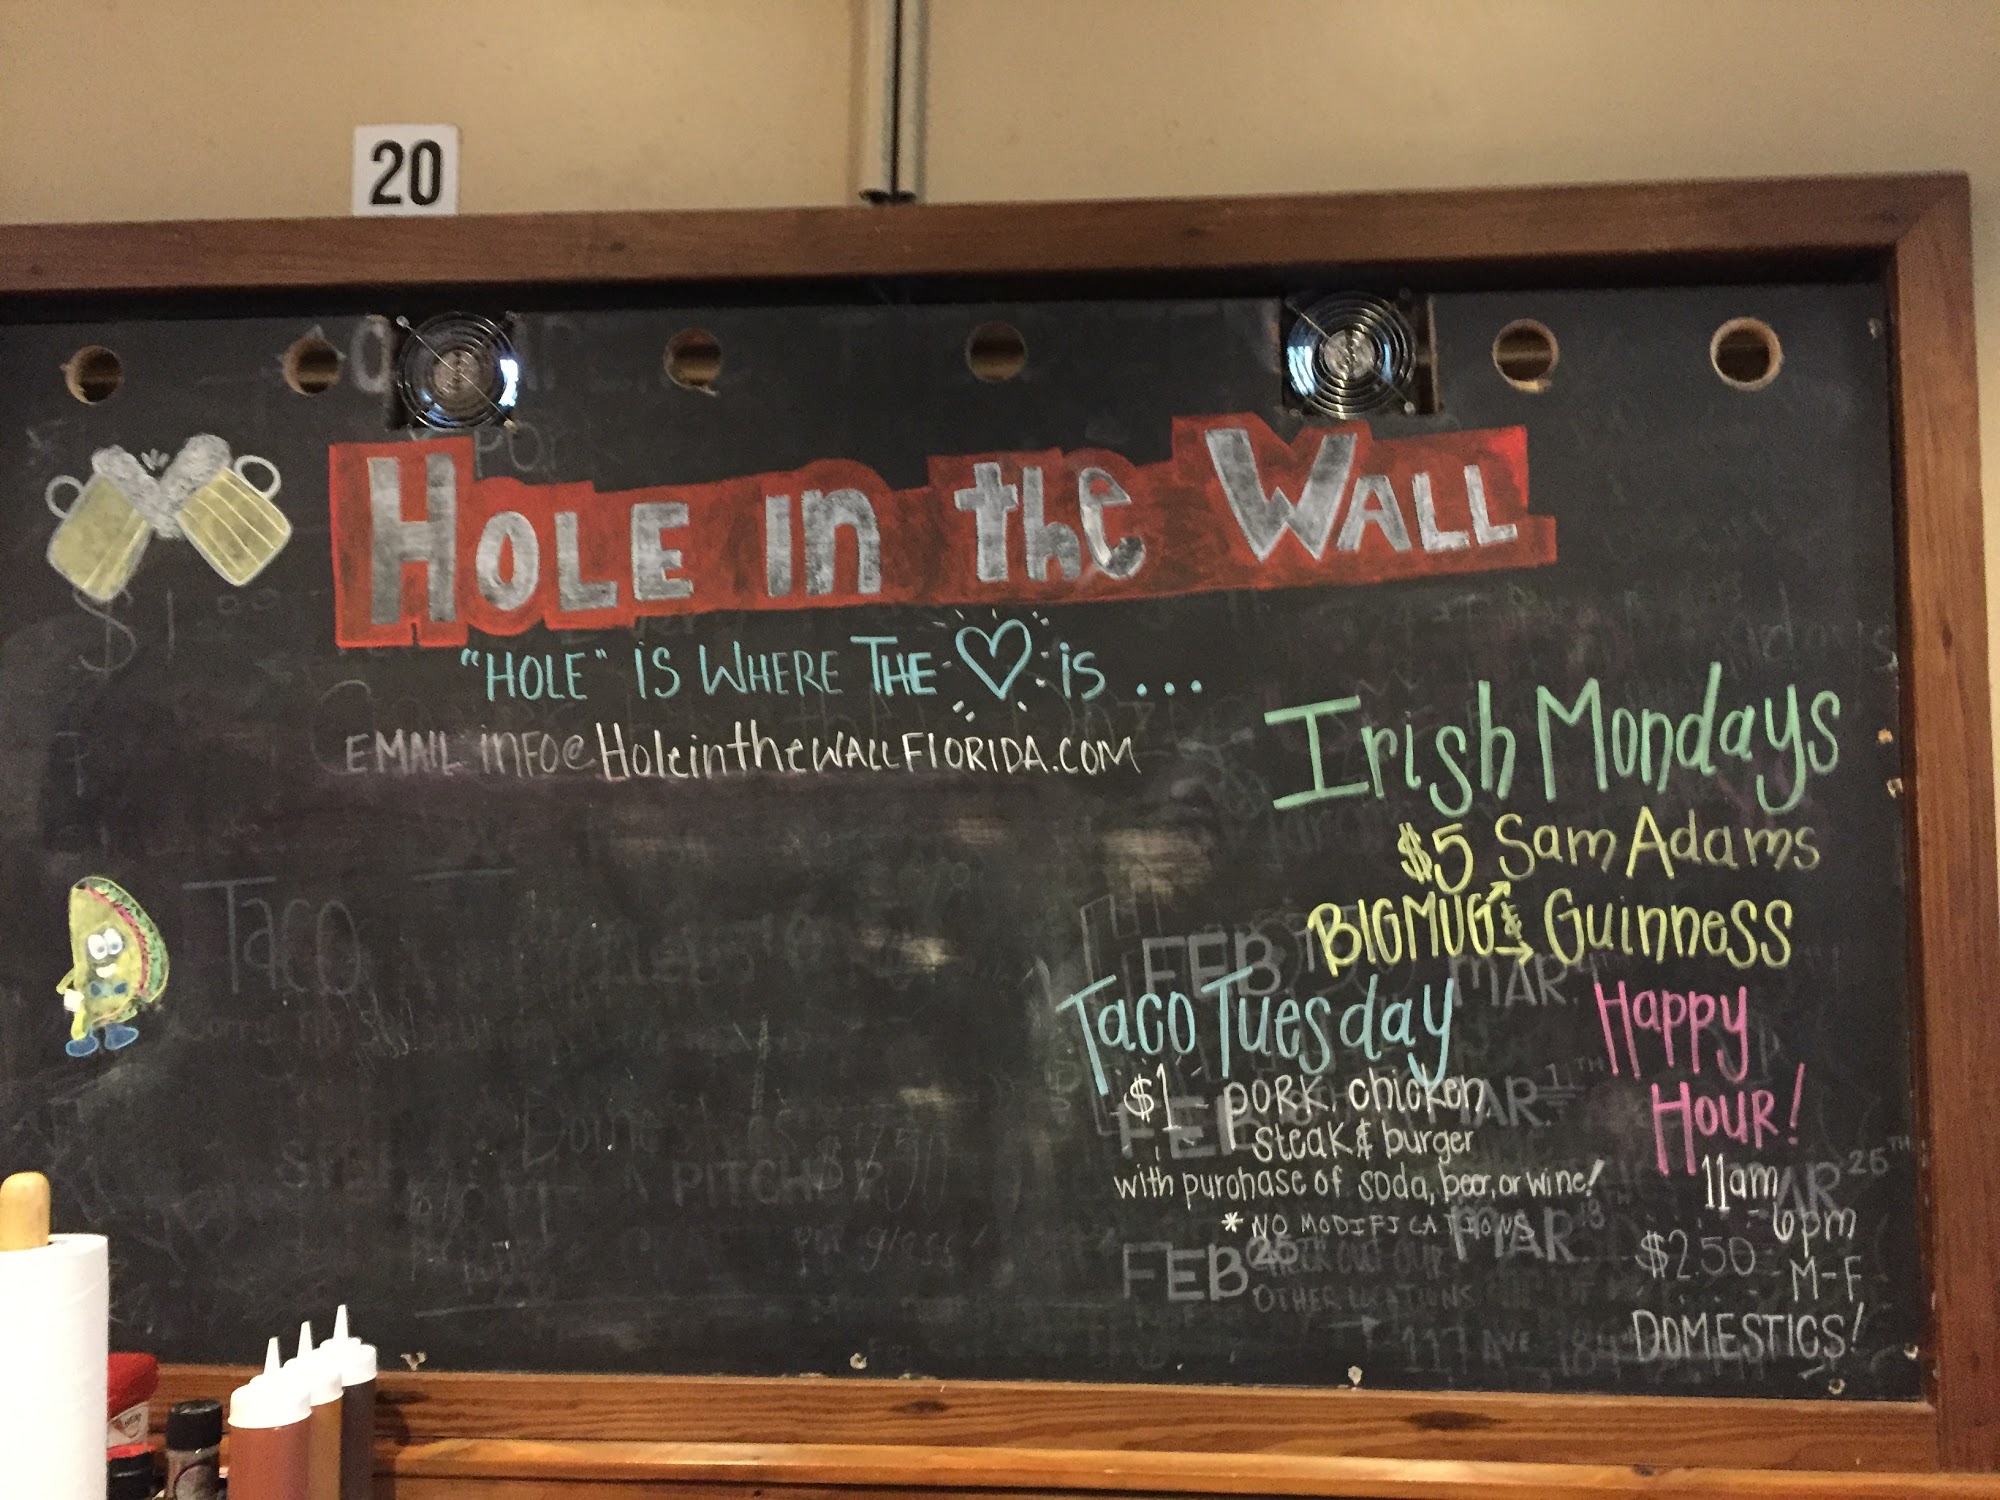 20
HOLE in the WALL
"HOLE" iS WHERE THE iS ...
EMAIL: inFO@HoleintheWALLFLORIDA.COM
Irish Mondays
$5 Sam Adams
BIG MUG & Guinness
Taco Tuesday
$1 pork, chicken,
steak & burger
with purchase of soda, beer, or wine!
* NO MODIFICATIONS
Happy
HOUR!
11am
6pm
$2.50 M-F
DOMESTICS!
Taco
PITCH
per glass!
FEB
MAR.
FEB
MAR. 1TH
MAR 25TH
MAR. 18
FEB 26
CHECK OUT OUR
OTHER LOCATIONS
117 AVE